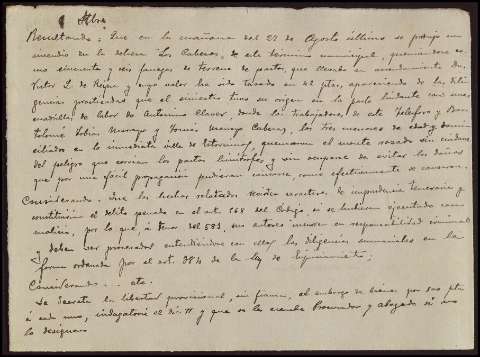 Resultando: Que en la mañana del 22 de Agosto último se produjo un
incendio en la dehesa "Las Caberas", de este término municipal, quemándose co-
mo cincuenta y seis fanegas de terreno de pastos, que llevaba en arrendamiento Dn.
Victor L. de y cuyo valor ha sido tasado en 42 ptas, apareciendo de las dili-
gencias practicadas que el siniestro tuvo su origen en la parte lindante con una
de labor de Antonino Claver, donde los trabajadores de este Telesforo y Bar-
tolomé y Tomás Cabezas, los tres menores de edad y domi-
ciliados en la inmediata villa de Totanes, quemaron el monte rozado sin cuidarse
del peligro que corrían los pastos limítrofes, y sin ocuparse de evitar los daños
que por una fácil propagación pudieran causarse, como efectivamente se causaron.
Considerando: Que los hechos relatados revisten caracteres de imprudencia temeraria y
constitutivos el delito penado en el art. 568 del Código, si se hubieran ejecutado con
malicia, por lo que, á tenor del 581, sus autores incurren en responsabilidad criminal
y deben ser procesados entendiéndose con ellos las diligencias sumariales en la
forma ordenada por el art. 384 de la ley de Enjuiciamiento;
Considerando ... etc.
Se decreta la libertad provisional, sin fianza, el embargo de bienes por 500 pts
á cada uno, indagatoria el dia 11 y que se les nombre Procurador y abogado si no
lo designan